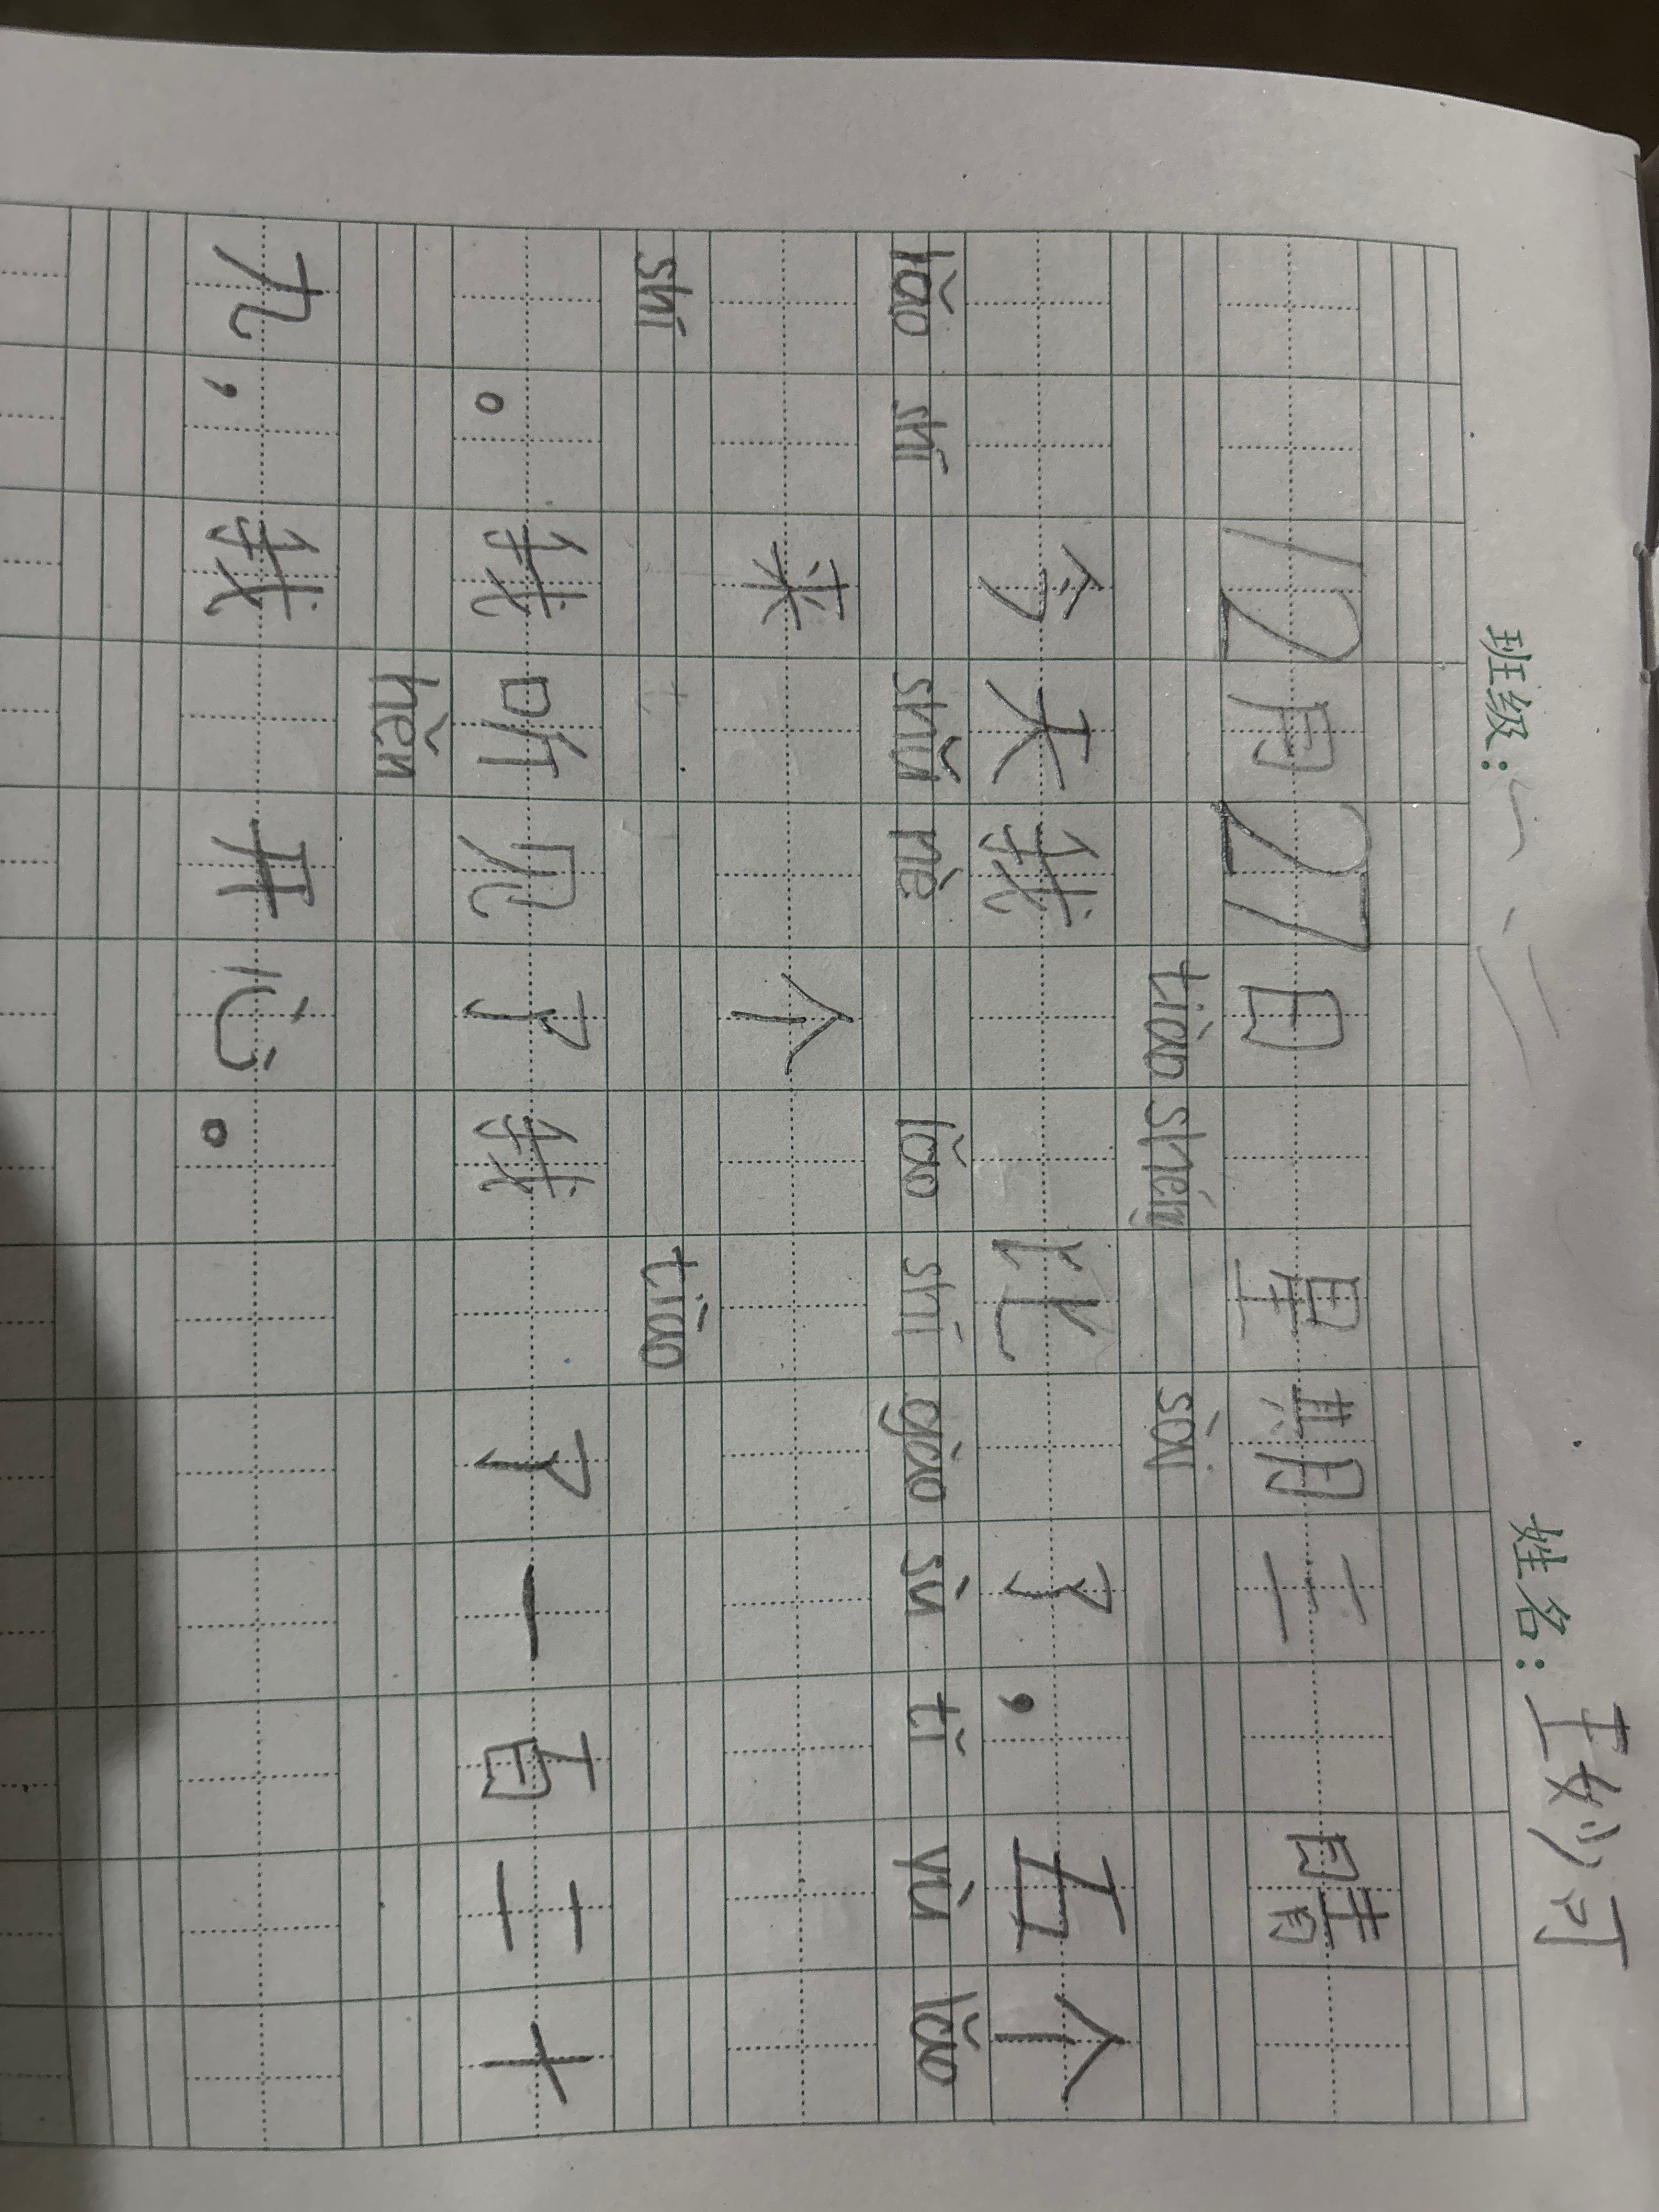 班级：一、二 姓名：王妙可
12月27日 星期二 晴
tiào shéng sài
今天我 比 了，五个
lǎo shī shǔ nè lǎo shī gào sù tǐ yù lǎo
来 个
shī tiāo
。我听见了我 了一百二十
hěn
九，我 开心。